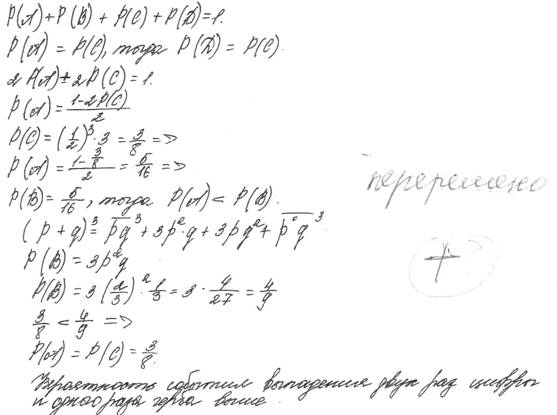 P(A)+P(B)+P(C)+P(D)=1.
P(A) = P(C), тогда P(D) = P(C).
2P(A)±2P(C)=1.
P(A) = (1-2P(C))/2
P(C) = (1/2)³·3 = 3/8 =>
P(A) = (1-3/8)/2 = 5/16 =>
P(B) = 5/16, тогда P(A) < P(B).
(p+q)³ = p q³ + 3p²·q + 3pq² + p°q³
P(B) = 3p²q
P(B) = 3(2/3)²·1/3 = 3·4/27 = 4/9
3/8 < 4/9 =>
P(A) = P(C) = 3/8.
Вероятность события выпадения двух раз цифры
и одного раза герба выше.
перерешено
+